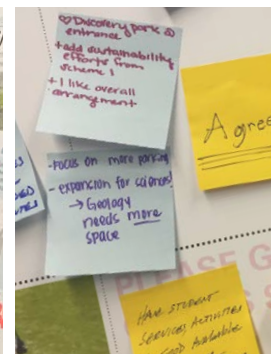 ♡ Discovery park @
entrance
+ add sustainability
efforts from
scheme 1
+ I like overall
arrangement
Agree
- Focus on more parking
- expansion for sciences!
→ Geology
needs more
space
PLEASE G
HAVE STUDENT
SERVICES, ACTIVITIES
FOOD AVAILABLE